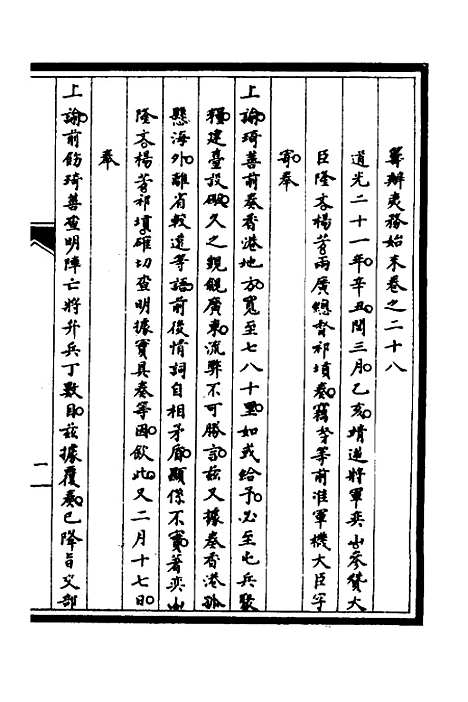 籌辦夷務始末卷之二十八
道光二十一年辛丑閏三月乙亥靖逆將軍奕山參贊大
臣隆文楊芳兩廣總督祁𡎴奏竊等前准軍機大臣字
寄奉
上諭琦善前奏香港地方寬至七八十里如或給予必至屯兵聚
糧建臺設礮久之覬覦廣東流弊不可勝言茲又據奏香港孤
懸海外離省較遠等語前後情詞自相矛盾顯係不實著奕山
隆文楊芳祁𡎴確切查明據實具奏等因欽此又二月十七日
奉
上諭前飭琦善查明陣亡將弁兵丁數目茲據覆奏已降旨交部
二